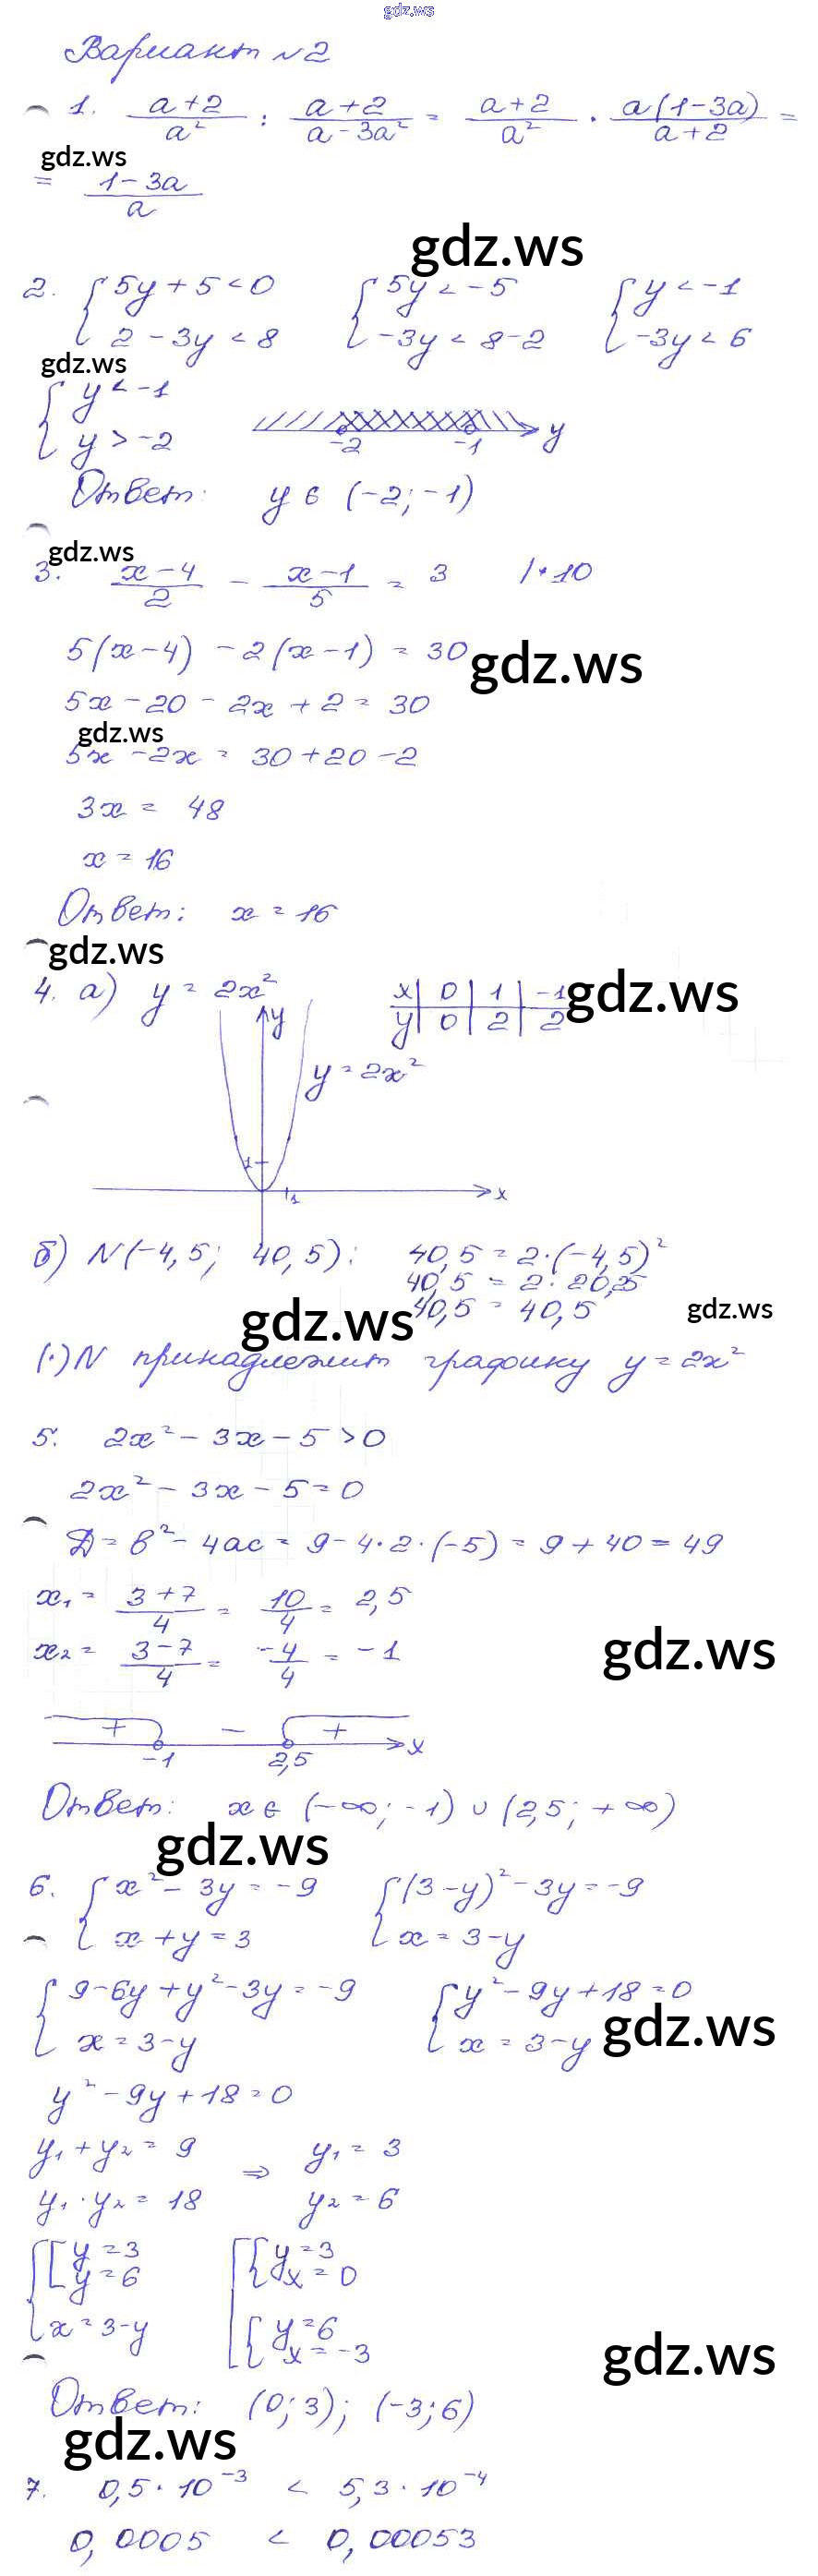 gdz.ws
Вариант №2
1. (a+2)/a² : (a+2)/(a-3a²) = (a+2)/a² · a(1-3a)/(a+2) =
gdz.ws
= (1-3a)/a
gdz.ws
2. { 5y+5<0 { 5y<-5 { y<-1
{ 2-3y<8 { -3y<8-2 { -3y<6
gdz.ws
{ y<-1
{ y>-2 -2 -1 y
Ответ: y ∈ (-2; -1)
gdz.ws
3. (x-4)/2 - (x-1)/5 = 3 /·10
5(x-4) - 2(x-1) = 30
gdz.ws
5x-20-2x+2=30
gdz.ws
5x-2x=30+20-2
3x = 48
x = 16
Ответ: x = 16
gdz.ws
4. а) y = 2x² x | 0 | 1 | -1
gdz.ws
y | 0 | 2 | 2
y
y = 2x²
1
1 x
б) N(-4,5; 40,5): 40,5 = 2·(-4,5)²
40,5 = 2·20,25
40,5 = 40,5
gdz.ws
gdz.ws
(·)N принадлежит графику y=2x²
5. 2x²-3x-5>0
2x²-3x-5=0
Д=в²-4ac=9-4·2·(-5)=9+40=49
x₁ = (3+7)/4 = 10/4 = 2,5
x₂ = (3-7)/4 = -4/4 = -1
gdz.ws
+ - +
-1 2,5 x
Ответ: x ∈ (-∞; -1) ∪ (2,5; +∞)
gdz.ws
6. { x²-3y=-9 { (3-y)²-3y=-9
{ x+y=3 { x=3-y
{ 9-6y+y²-3y=-9 { y²-9y+18=0
{ x=3-y { x=3-y
gdz.ws
y²-9y+18=0
y₁+y₂=9 ⇒ y₁=3
y₁·y₂=18 y₂=6
{ [ y=3 [ { y=3
[ y=6 { x=0
{ x=3-y [ { y=6
{ x=-3
gdz.ws
Ответ: (0;3); (-3;6)
gdz.ws
7. 0,5·10⁻³ < 5,3·10⁻⁴
0,0005 < 0,00053